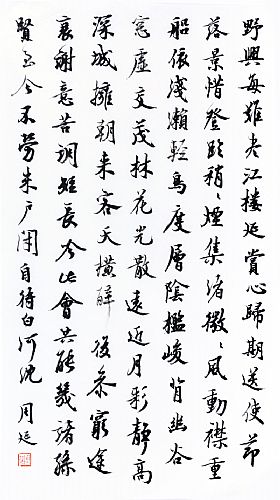 野興每難盡江樓延賞心歸期送使節
落景惜登臨稍〻煙集渚微〻風動襟重
船依淺瀨輕鳥度層陰檻峻背幽谷
窓虛交茂林花光散遠近月彩靜高
深城擁朝來客天橫醉後參窮途
衰謝意苦調短長吟此會共能幾諸孫
賢至今不勞朱戶閉自待白河沈 周